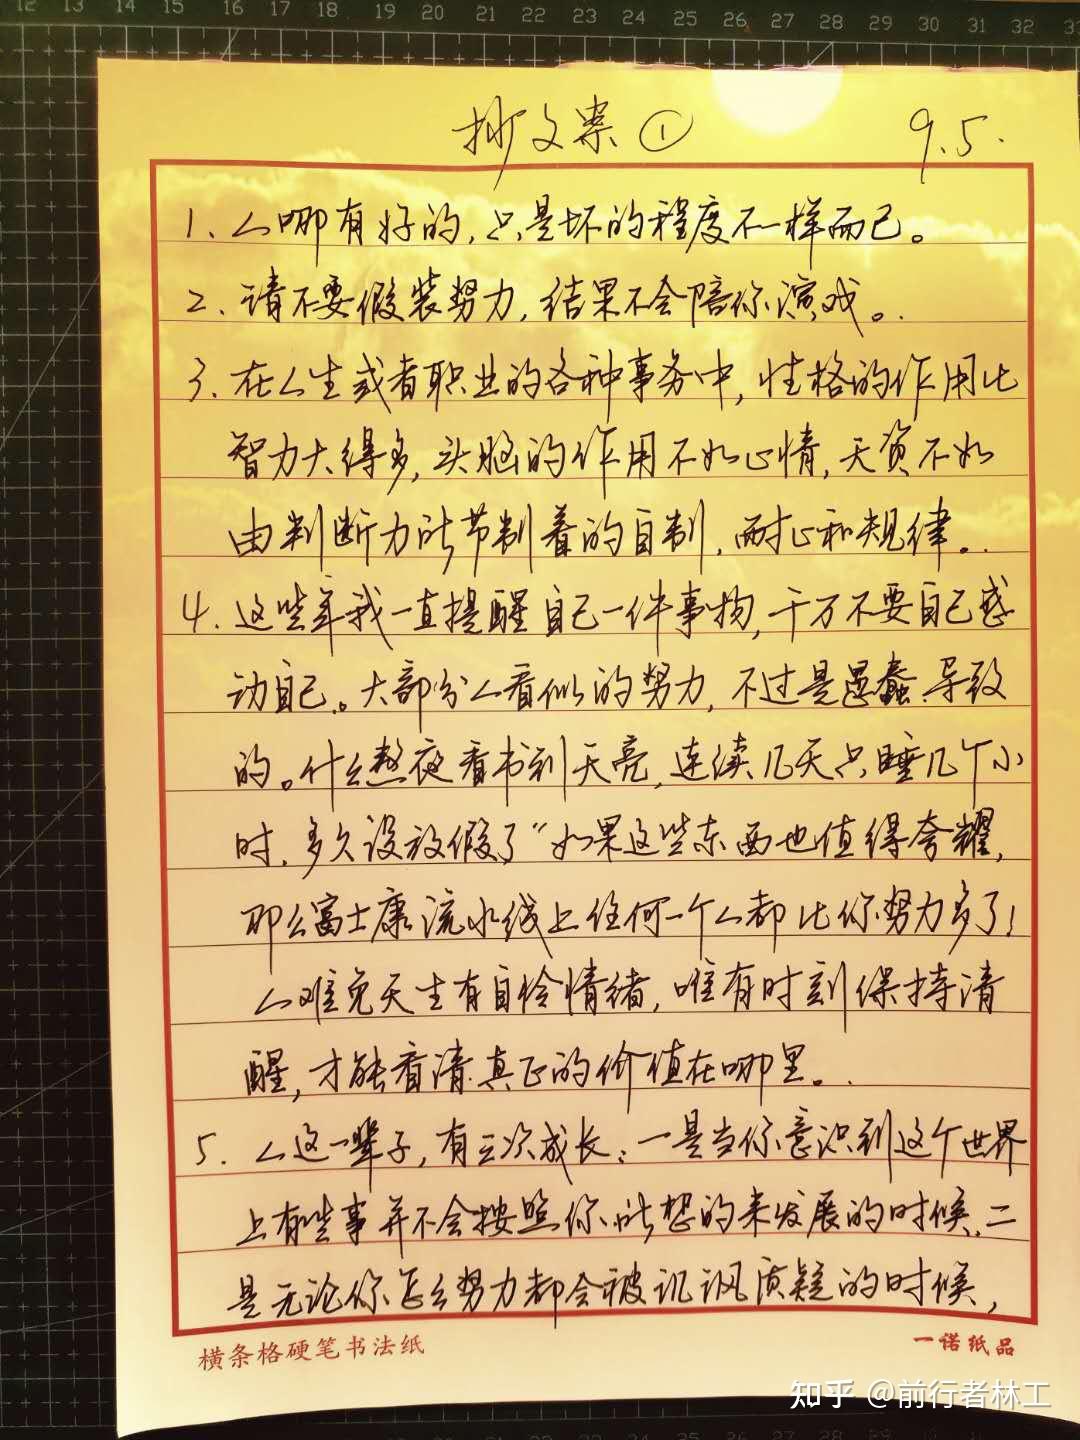 12 13 14 15 16 17 18 19 20 21 22 23 24 25 26 27 28 29 30 31 32 33
抄文案①
9.5.
1、人哪有好的,只是坏的程度不一样而已。
2、请不要假装努力,结果不会陪你演戏。
3、在人生或者职业的各种事务中,性格的作用比
智力大得多,头脑的作用不如心情,天资不如
由判断力所节制着的自制,耐心和规律。
4、这些年我一直提醒自己一件事物,千万不要自己感
动自己。大部分人看似的努力,不过是愚蠢导致
的。什么熬夜看书到天亮,连续几天只睡几个小
时,多久没放假了"如果这些东西也值得夸耀,
那么富士康流水线上任何一个人都比你努力多了!
人难免天生有自怜情绪,唯有时刻保持清
醒,才能看清真正的价值在哪里。
5、人这一辈子,有三次成长:一是当你意识到这个世界
上有些事并不会按照你所想的来发展的时候,二
是无论你怎么努力都会被讥讽质疑的时候,
横条格硬笔书法纸
一诺纸品
知乎 @前行者林工